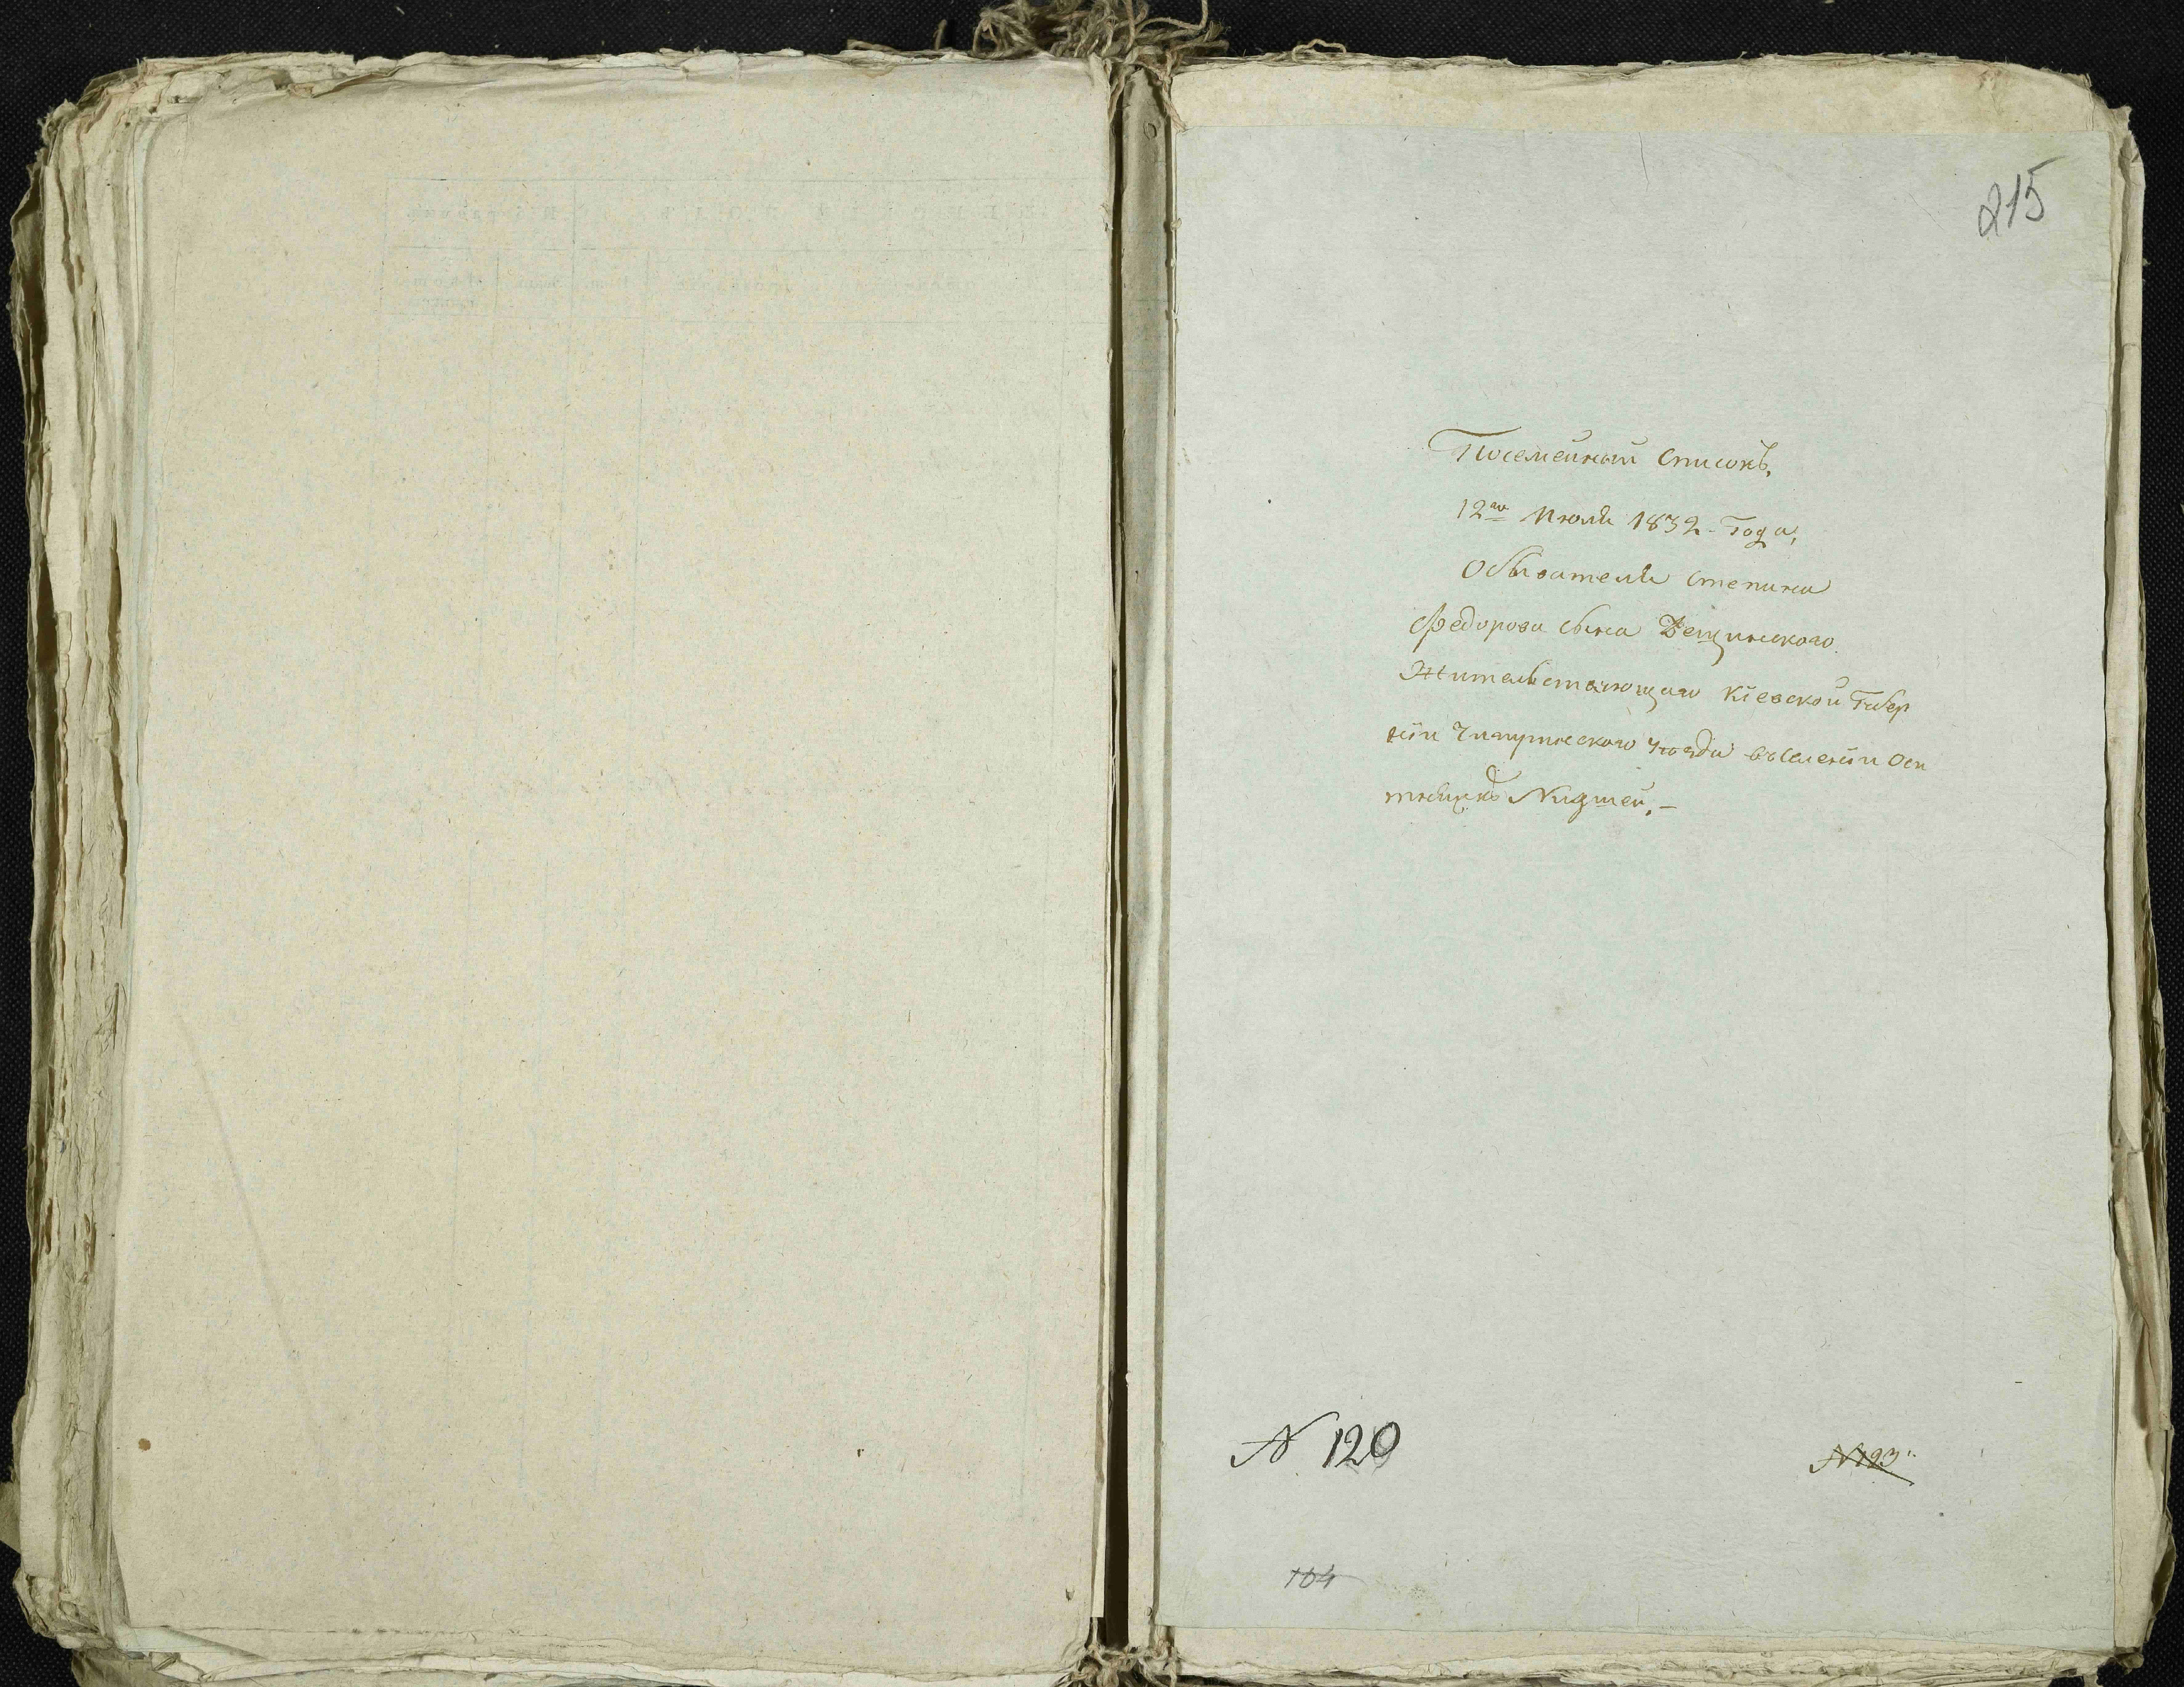 215
Посемейный списокъ,
12го Июля 1832 Года,
Обывателя Степана
Федорова сына Дещинского
Жительствующаго Кіевской Губер
ніи Чигиринского уезда въ селеніи Оси
тняшкѣ Нидшей,-
N 120
N 123
164